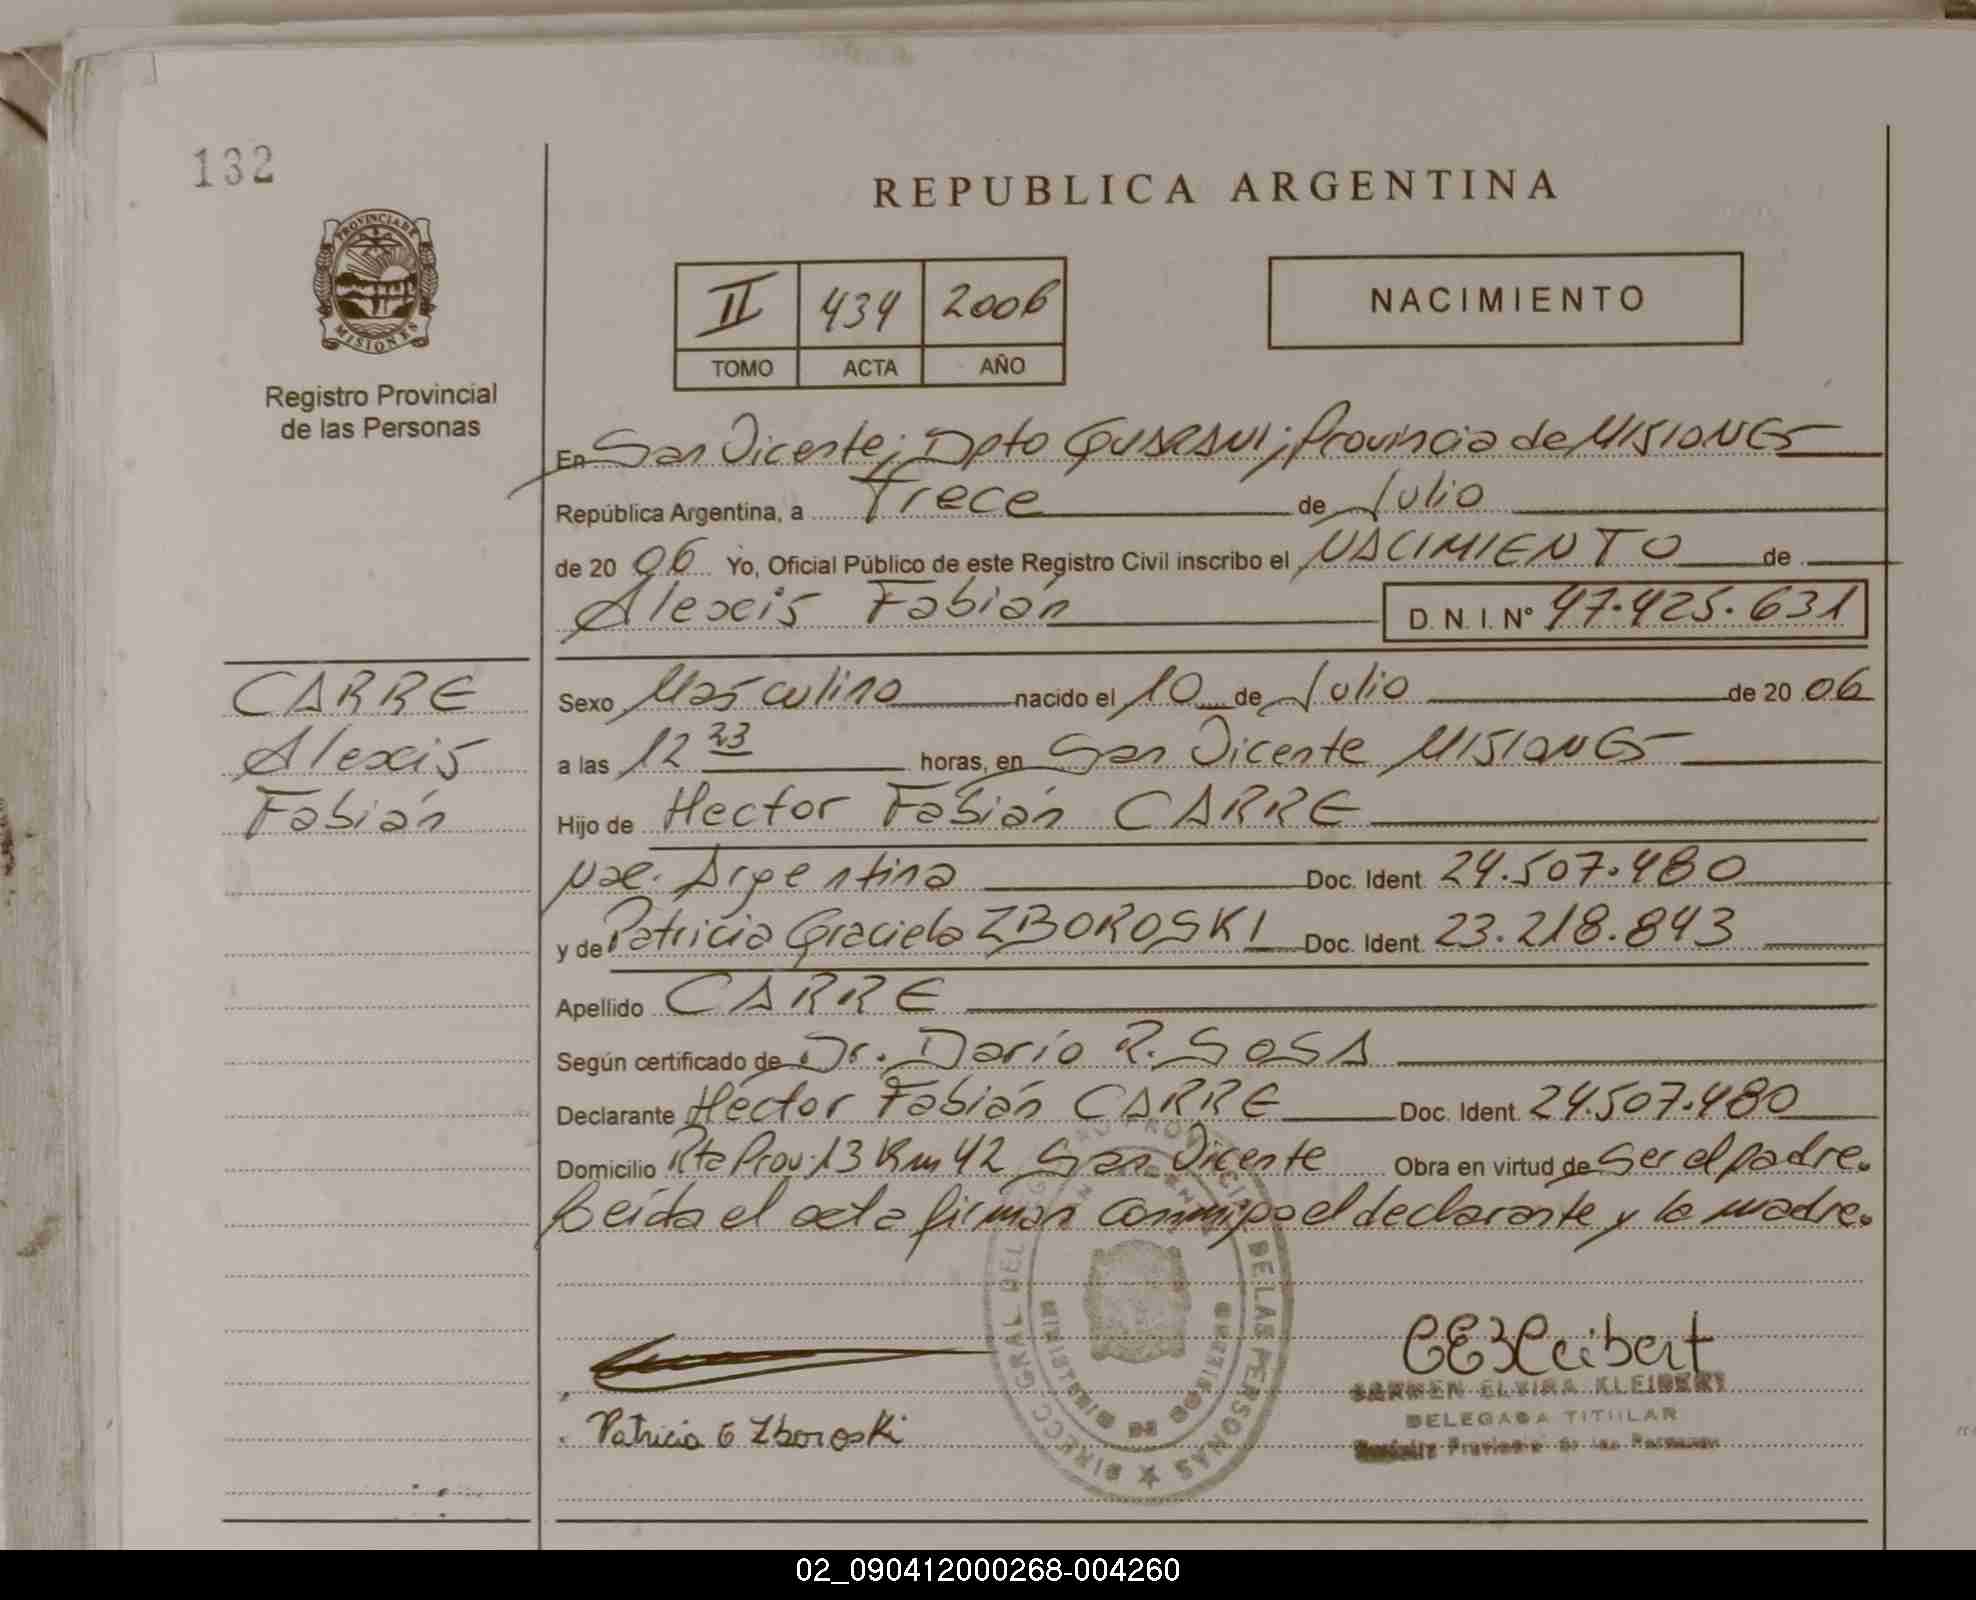 132
PROVINCIA DE
MISIONES
Registro Provincial
de las Personas
REPUBLICA ARGENTINA
II 434 2006
TOMO ACTA AÑO
NACIMIENTO
En San Vicente; Dpto GUARANI; Provincia de MISIONES
República Argentina, a Trece de Julio
de 20 06 Yo, Oficial Público de este Registro Civil inscribo el NACIMIENTO de
Alexis Fabián D. N. I. Nº 47.425.631
CARRE
Alexis
Fabián
Sexo Masculino nacido el 10 de Julio de 20 06
a las 12 23 horas, en San Vicente MISIONES
Hijo de Hector Fabián CARRE
Nac. Argentina Doc. Ident. 24.507.480
y de Patricia Graciela ZBOROSKI Doc. Ident. 23.218.843
Apellido CARRE
Según certificado de Dr. Darío R. SOSA
Declarante Hector Fabián CARRE Doc. Ident. 24.507.480
Domicilio Rta Prov. 13 Km 42 San Vicente Obra en virtud de Ser el padre.
Leída el acta firman conmigo el declarante y la madre.
DIRECC GRAL DEL REG PROVINCIAL DE LAS PERSONAS
MINISTERIO DE GOBIERNO
CEKleibert
CARMEN ELVIRA KLEIBERT
DELEGADA TITULAR
Registro Provincial de las Personas
Patricia G Zboroski
02_090412000268-004260